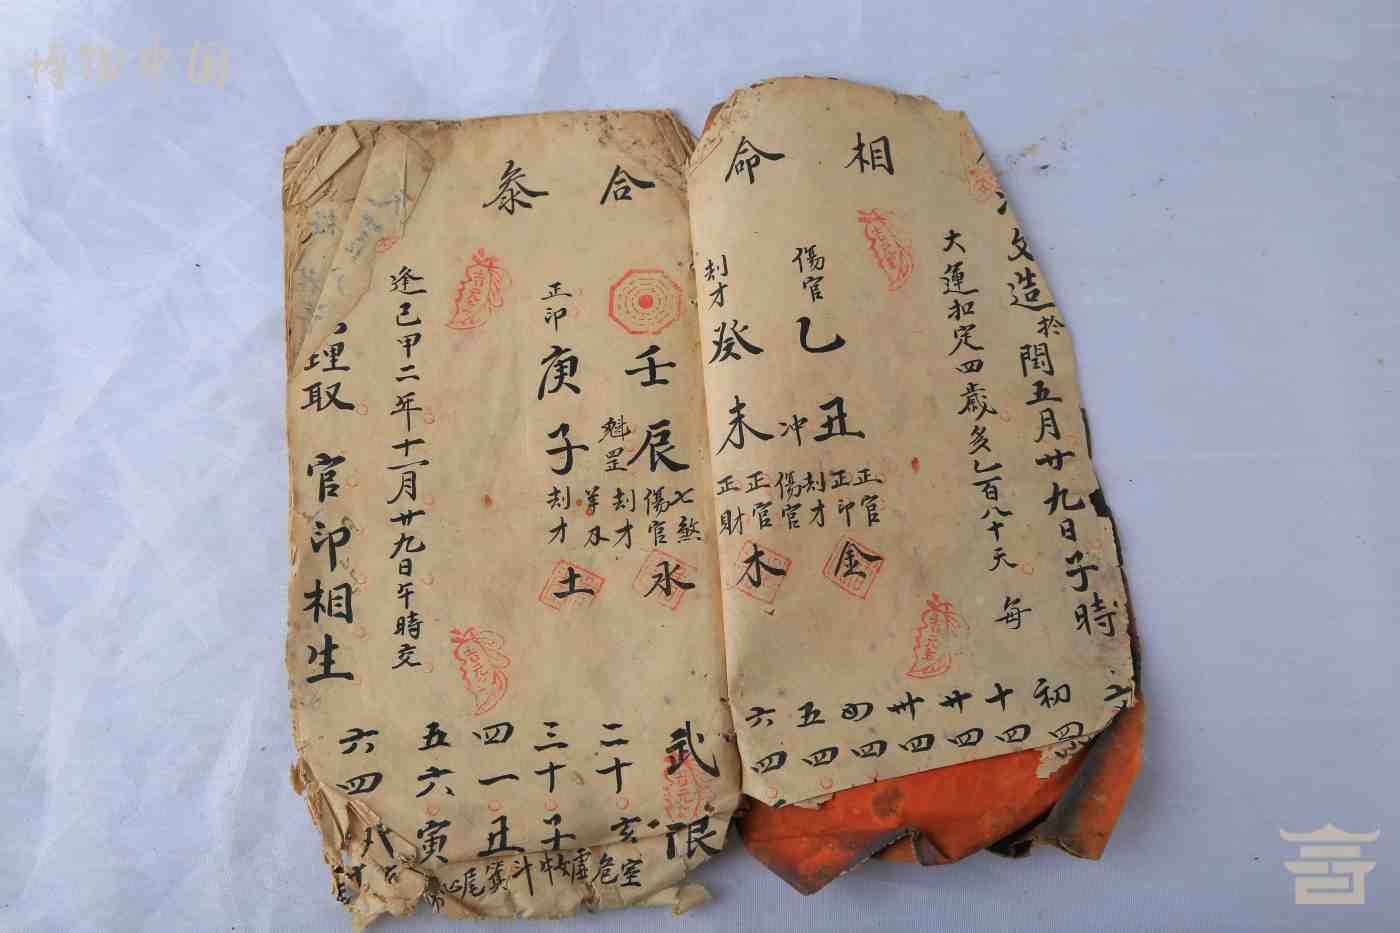 博物中國
相命合叅
文造於閏五月廿九日子時
大運扣定四歲多乙百八十天 每
傷官
乙丑
正官
正印
刦才
金
冲
刦才
癸未
傷官
正官
正財
木
壬辰
七煞
傷官
刦才
水
魁罡
正印
庚子
羊刃
刦才
土
逢己甲二年十一月廿九日午時交
理取 官印相生
初四
十四
廿四
卅四
四四
五四
六四
武限
二十亥
三十子
四一丑
五六寅
六四
室危虛女牛斗箕尾心
吉元